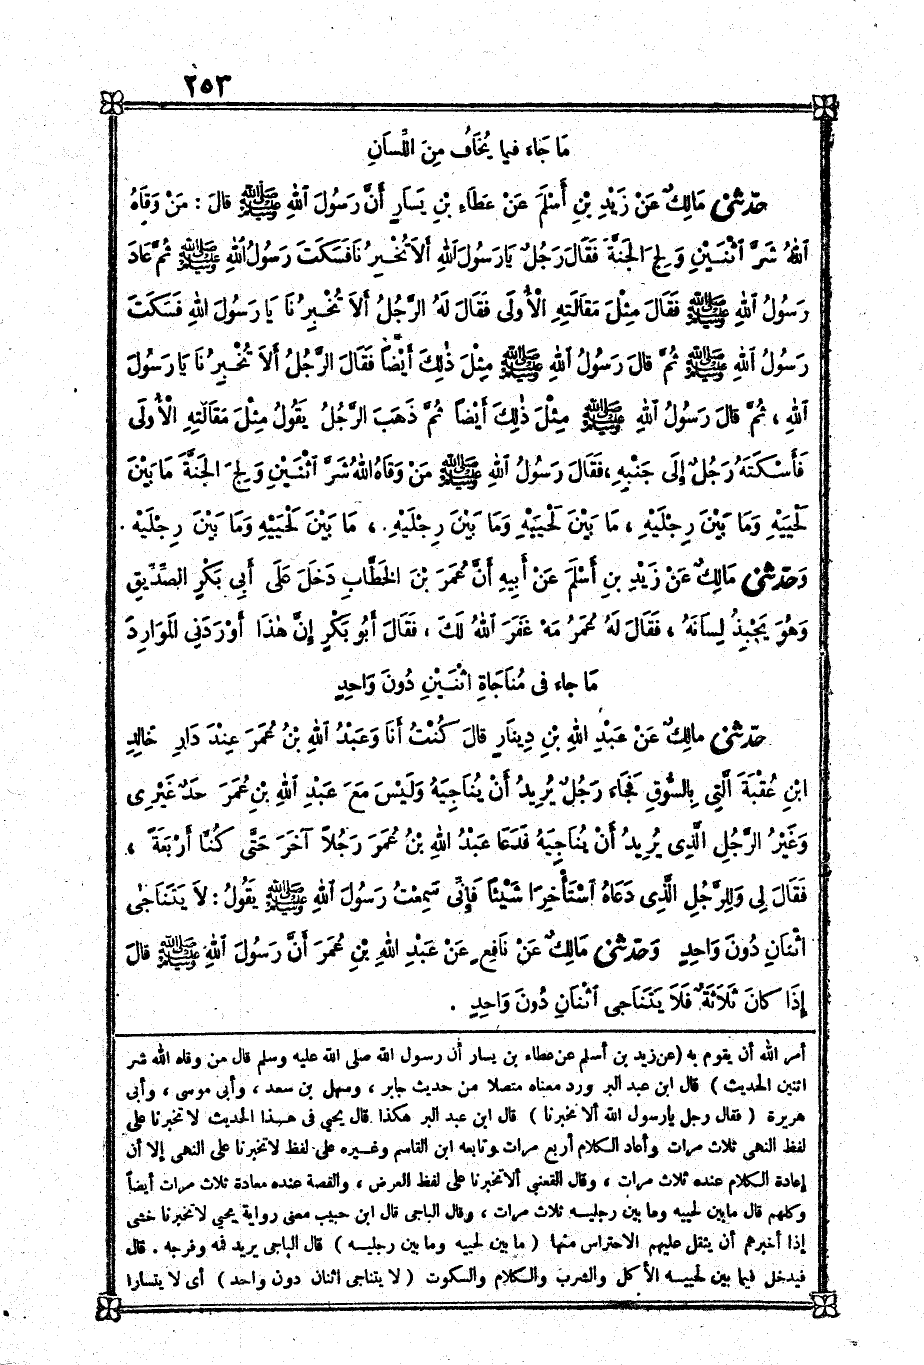 ٢٥٣
مَا جَاءَ فيما يُخَافُ مِنَ اللِّسَانِ
حدّثنى مَالِكٌ عَنْ زَيْدِ بْنِ أَسْلَمَ عَنْ عَطَاءِ بْنِ يَسَارٍ أَنَّ رَسُولَ اللهِ ﷺ قالَ : مَنْ وَقَاهُ
اللهُ شَرَّ اثْنَيْنِ وَلجَ الجَنَّةَ فَقَالَ رَجُلٌ يَا رَسُولَ اللهِ أَلاَ تُخْبِرُنَا فَسَكَتَ رَسُولُ اللهِ ﷺ ثُمَّ عَادَ
رَسُولُ اللهِ ﷺ فَقَالَ مِثْلَ مَقَالَتِهِ الْأُولَى فَقَالَ لَهُ الرَّجُلُ أَلاَ تُخْبِرُنَا يَا رَسُولَ اللهِ فَسَكَتَ
رَسُولُ اللهِ ﷺ ثُمَّ قالَ رَسُولُ اللهِ ﷺ مِثْلَ ذٰلِكَ أَيْضاً فَقَالَ الرَّجُلُ أَلاَ تُخْبِرُنَا يَا رَسُولَ
اللهِ ، ثُمَّ قالَ رَسُولُ اللهِ ﷺ مِثْلَ ذٰلِكَ أَيْضاً ثُمَّ ذَهَبَ الرَّجُلُ يَقُولُ مِثْلَ مَقَالَتِهِ الْأُولَى
فَأَسْكَتَهُ رَجُلٌ إِلَى جَنْبِهِ ، فَقَالَ رَسُولُ اللهِ ﷺ مَنْ وَقَاهُ اللهُ شَرَّ اثْنَيْنِ وَلجَ الجَنَّةَ مَا بَيْنَ
لَحْيَيْهِ وَمَا بَيْنَ رِجْلَيْهِ ، مَا بَيْنَ لَحْيَيْهِ وَمَا بَيْنَ رِجْلَيْهِ ، مَا بَيْنَ لَحْيَيْهِ وَمَا بَيْنَ رِجْلَيْهِ .
وَحدّثنى مَالِكٌ عَنْ زَيْدِ بْنِ أَسْلَمَ عَنْ أَبِيهِ أَنَّ عُمَرَ بْنَ الخَطَّابِ دَخَلَ عَلَى أَبِي بَكْرٍ الصِّدِّيقِ
وَهُوَ يَجْبِذُ لِسَانَهُ ، فَقَالَ لَهُ عُمَرُ مَهْ غَفَرَ اللهُ لَكَ ، فَقَالَ أَبُو بَكْرٍ إِنَّ هٰذَا أَوْرَدَنِي المَوَارِدَ
مَا جاء فى مُنَاجَاةِ اثْنَيْنِ دُونَ وَاحِدٍ
حدّثنى مالِكٌ عَنْ عَبْدِ اللهِ بْنِ دِينَارٍ قالَ كُنْتُ أَنَا وَعَبْدُ اللهِ بْنُ عُمَرَ عِنْدَ دَارِ خَالِدِ
ابْنِ عُقْبَةَ الَّتِي بِالسُّوقِ فَجَاءَ رَجُلٌ يُرِيدُ أَنْ يُنَاجِيَهُ وَلَيْسَ مَعَ عَبْدِ اللهِ بْنِ عُمَرَ حَدٌ غَيْرِى
وَغَيْرُ الرَّجُلِ الَّذِى يُرِيدُ أَنْ يُنَاجِيَهُ فَدَعَا عَبْدُ اللهِ بْنُ عُمَرَ رَجُلاً آخَرَ حَتَّى كُنَّا أَرْبَعَةً ،
فَقَالَ لِى وَلِلرَّجُلِ الَّذِى دَعَاهُ اسْتَأْخِرَا شَيْئاً فَإِنِّى سَمِعْتُ رَسُولَ اللهِ ﷺ يَقُولُ : لاَ يَتَنَاجَى
اثْنَانِ دُونَ وَاحِدٍ وَحدّثنى مَالِكٌ عَنْ نَافِعٍ عَنْ عَبْدِ اللهِ بْنِ عُمَرَ أَنَّ رَسُولَ اللهِ ﷺ قالَ
إِذَا كَانَ ثَلَاثَةٌ فَلَا يَتَنَاجى اثْنَانِ دُونَ وَاحِدٍ .
أمر الله أن يقوم به (عن زيد بن أسلم عن عطاء بن يسار أن رسول الله صلى الله عليه وسلم قال من وقاه الله شر
اثنين الحديث ) قال ابن عبد البر ورد معناه متصلا من حديث جابر ، وسهل بن سعد ، وأبى موسى ، وأبى
هريرة ( فقال رجل يارسول الله ألا تخبرنا ) قال ابن عبد البر هكذا قال يحيى فى هذا الحديث لا تخبرنا على
لفظ النهى ثلاث مرات وأعاد الكلام أربع مرات وتابعه ابن القاسم وغيره على لفظ لاتخبرنا على النهى إلا أن
إعادة الكلام عنده ثلاث مرات ، وقال القعنبى ألاتخبرنا على لفظ العرض ، والقصة عنده معادة ثلاث مرات أيضاً
وكلهم قال مابين لحييه وما بين رجليه ثلاث مرات ، وقال الباجى قال ابن حبيب معنى رواية يحيى لاتخبرنا خشى
إذا أخبرهم أن يثقل عليهم الاحتراس منها ( ما بين لحييه وما بين رجليه ) قال الباجى يريد فمه وفرجه . قال
فيدخل فيما بين لحييه الأكل والشرب والكلام والسكوت ( لا يتناجى اثنان دون واحد ) أى لا يتسارا